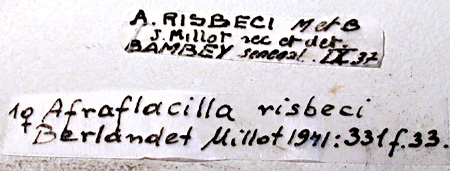 A. RISBECI M et B
J. Millot rec et det.
BAMBEY Senegal. IX.37
1♀ Afraflacilla risbeci
Berlandet Millot 1941: 331f. 33.